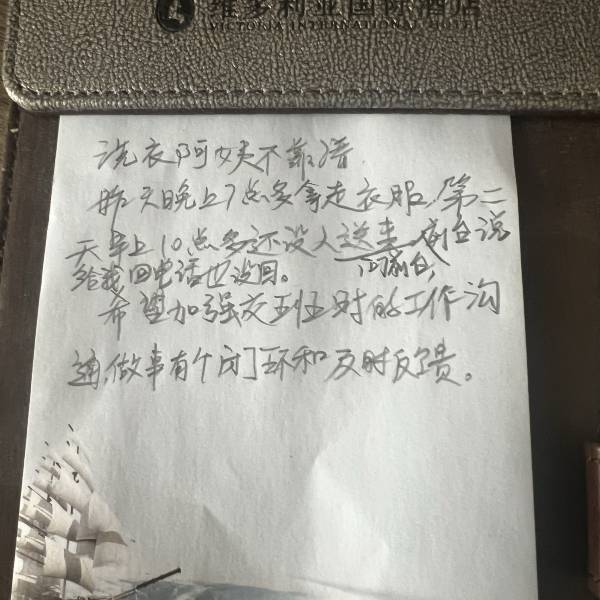 维多利亚国际酒店
VICTORIA INTERNATIONAL HOTEL
洗衣阿姨不靠谱
昨天晚上7点多拿走衣服,第二
天早上10点多还没人送来,问前台,前台说
给我回电话也没回。
希望加强交班时的工作沟
通,做事有个闭环和及时反馈。